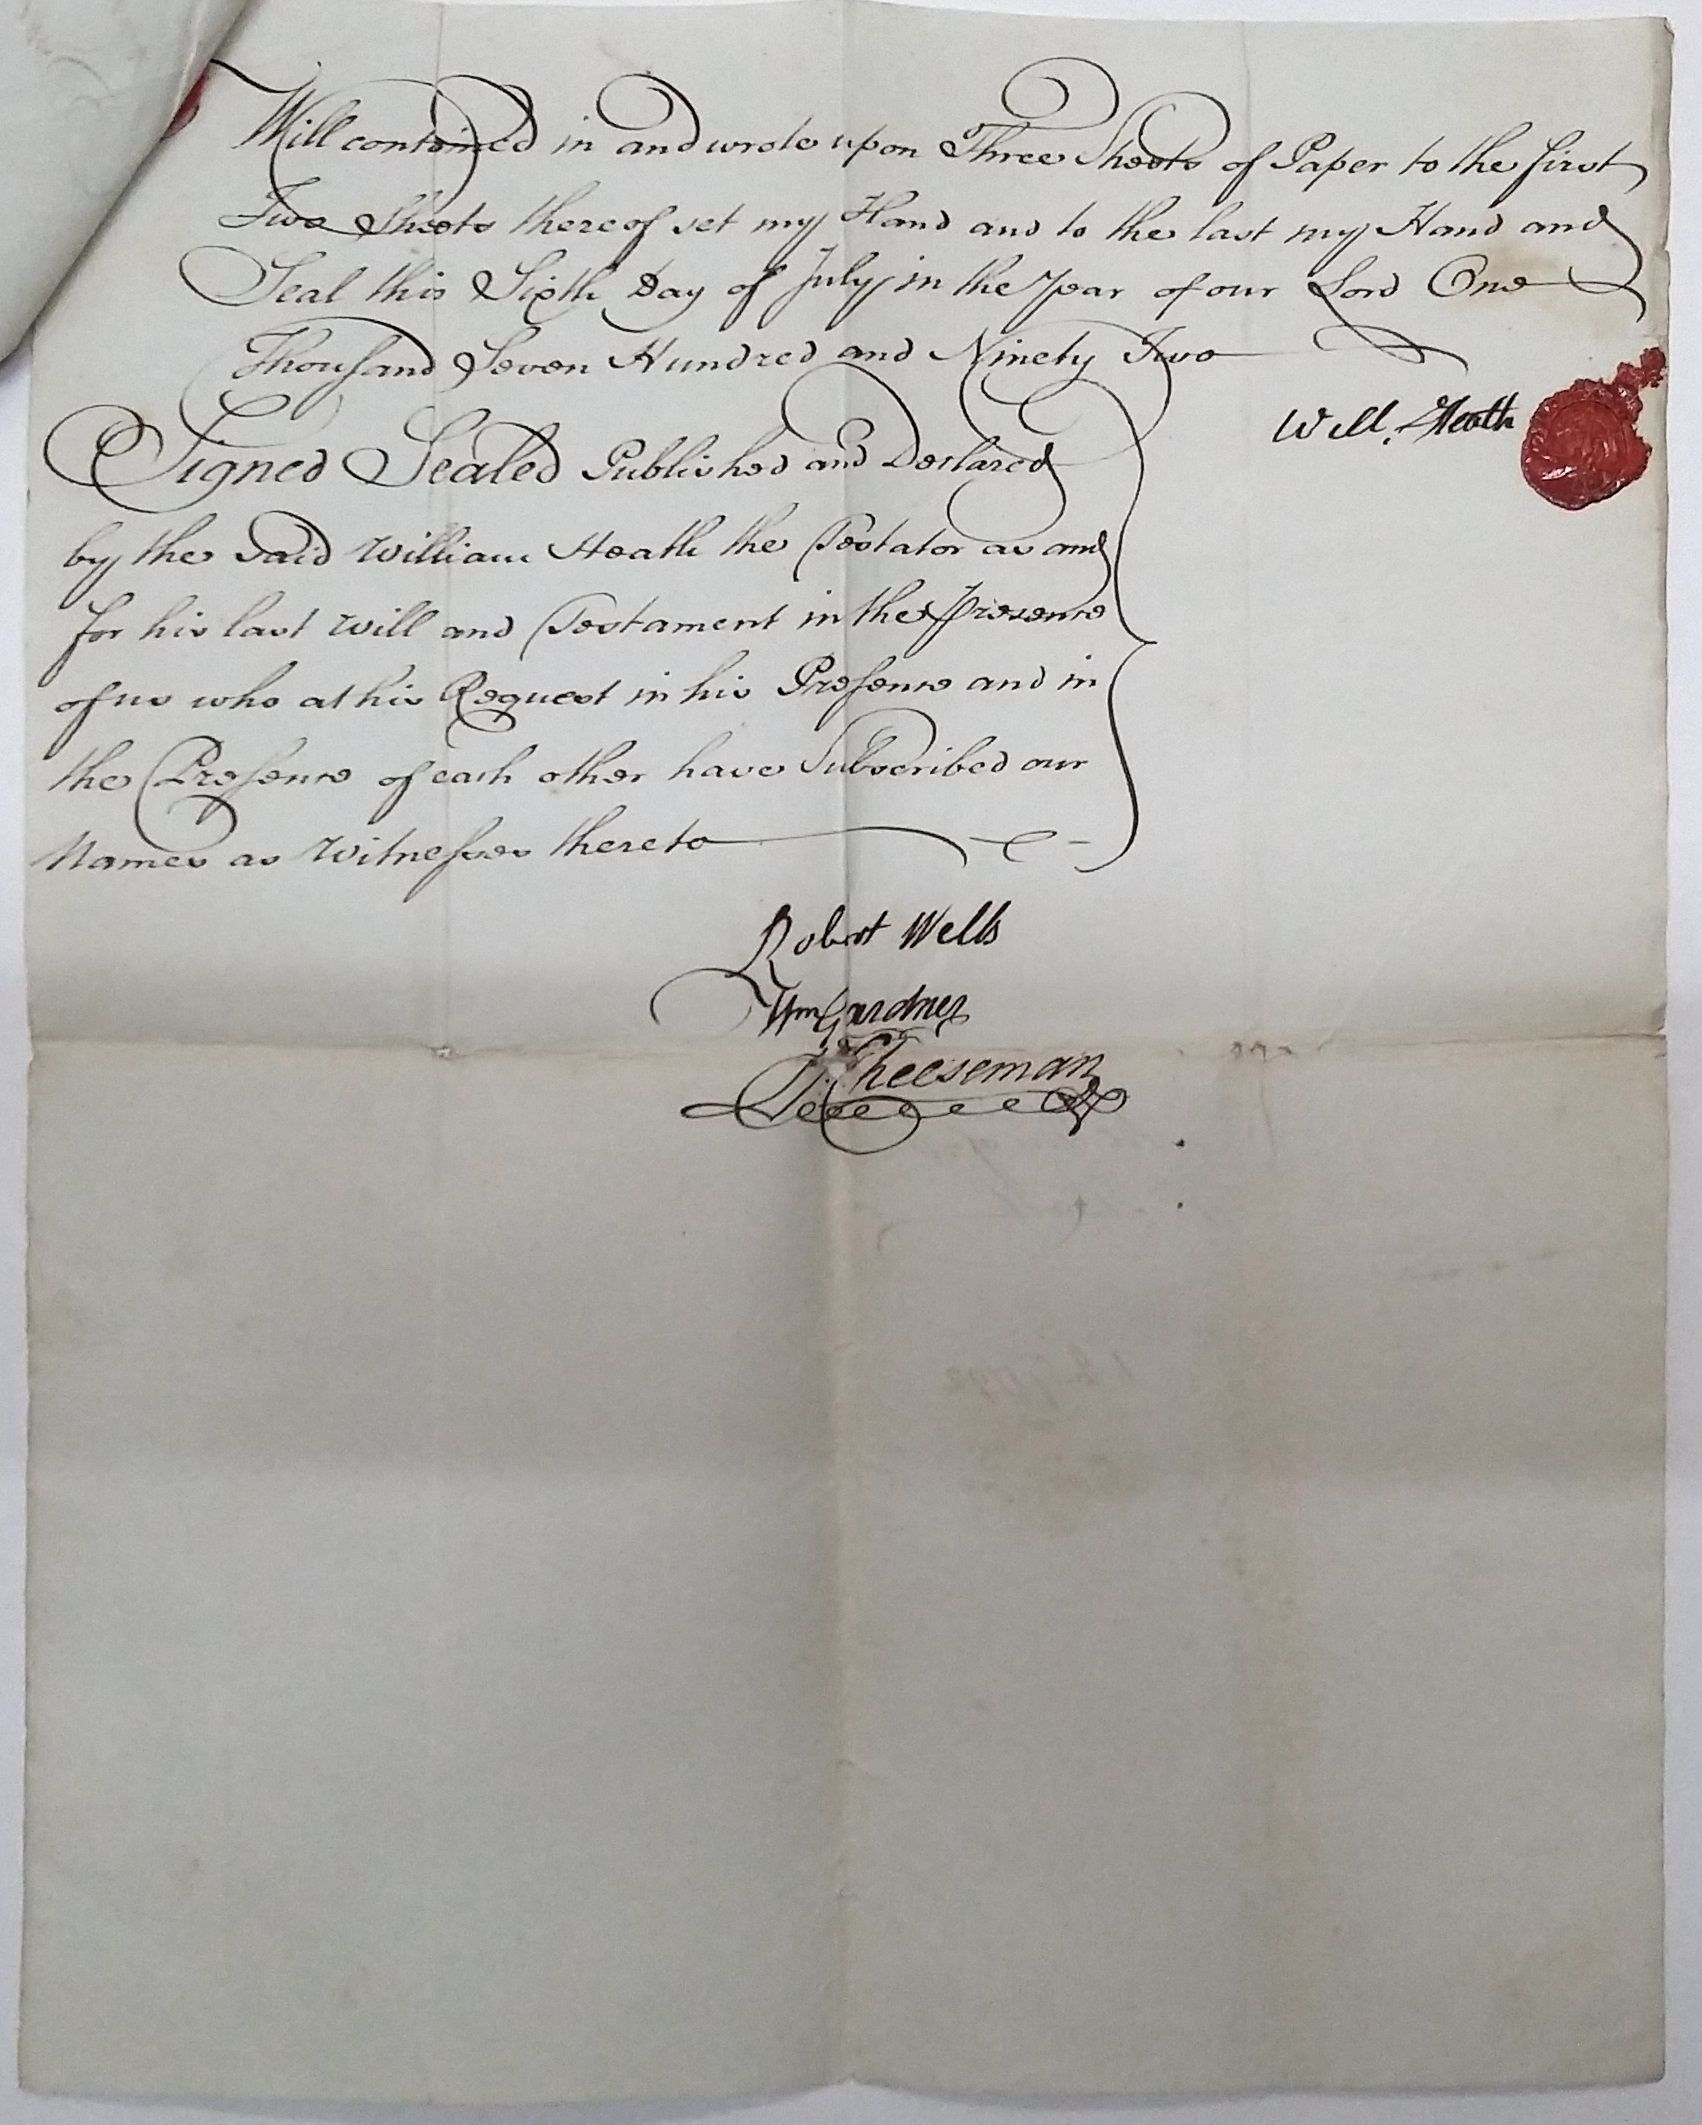 Will contained in and wrote upon Three Sheets of Paper to the first
Two Sheets thereof set my Hand and to the last my Hand and
Seal this Sixth Day of July in the Year of our Lord One
Thousand Seven Hundred and Ninety Two
Will. Heath
Signed Sealed Published and Declared
by the said William Heath the Testator as and
for his last Will and Testament in the Presence
of us who at his Request in his Presence and in
the Presence of each other have Subscribed our
Names as Witnesses thereto
Robert Wells
Wm Gardner
T Cheeseman